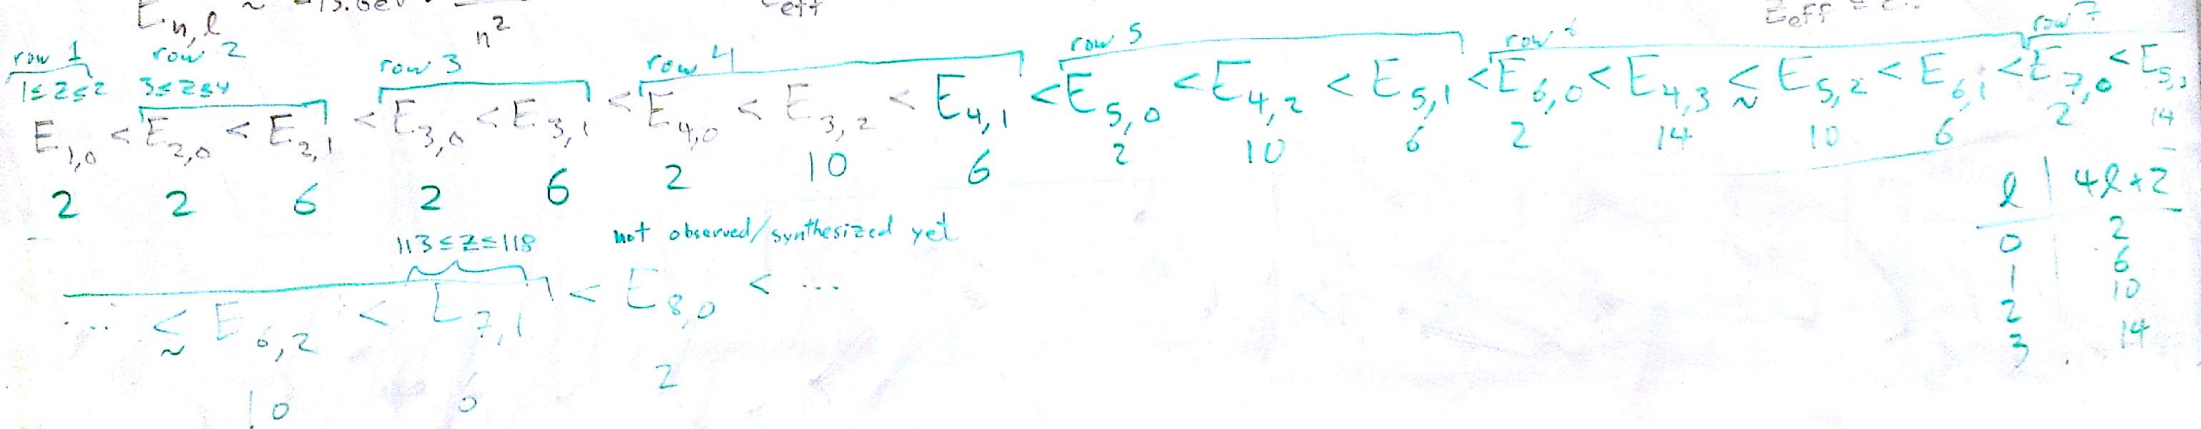 E_{n,ℓ} ~ -13.6eV
n²
eff
Z_{eff}
row 1 row 2 row 3 row 4 row 5 row 6 row 7
1≤Z≤2 3≤Z≤4
E_{1,0} < E_{2,0} < E_{2,1} < E_{3,0} < E_{3,1} < E_{4,0} < E_{3,2} < E_{4,1} < E_{5,0} < E_{4,2} < E_{5,1} < E_{6,0} < E_{4,3} ≲ E_{5,2} < E_{6,1} < E_{7,0} < E_{5,3}
2 2 6 2 6 2 10 6 2 10 6 2 14 10 6 2 14
113≤Z≤118 not observed/synthesized yet
... ≲ E_{6,2} < E_{7,1} < E_{8,0} < ...
10 6 2
ℓ | 4ℓ+2
0 2
1 6
2 10
3 14